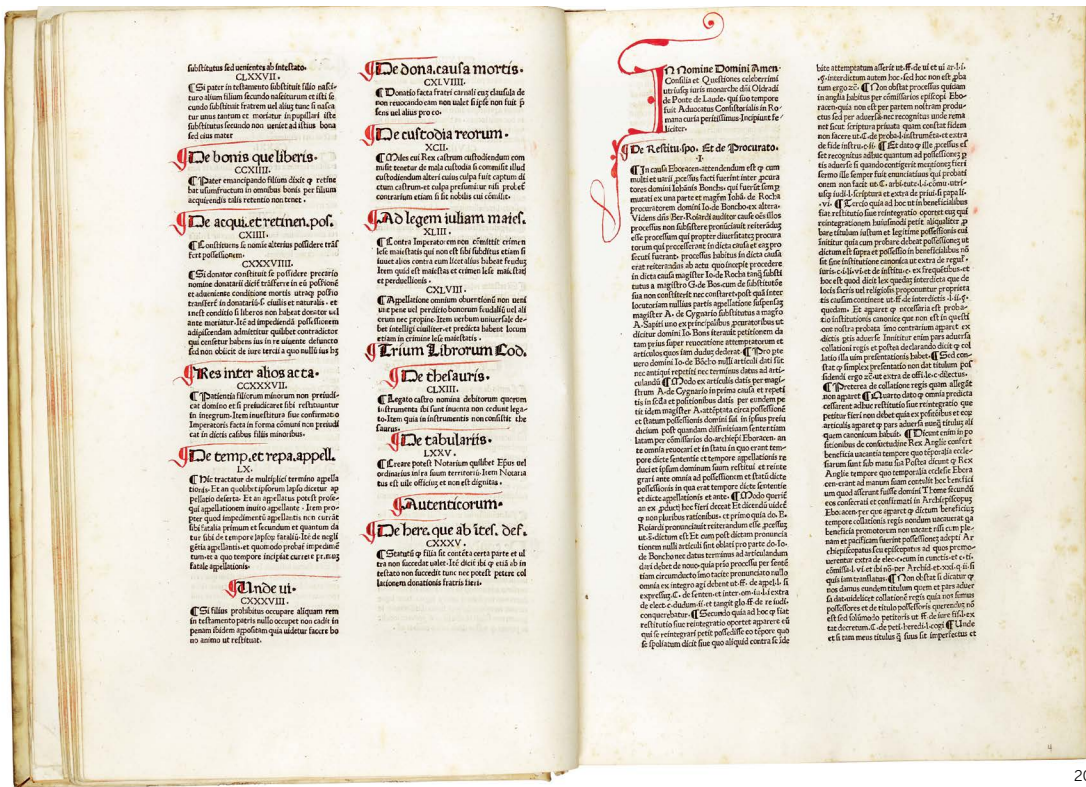 substitutus sed uenientes ab intestato.
CLXXVII.
¶ Si pater in testamento substituit filio nasci-
turo alium filium secundo nasciturum et isti se
cundo substituit fratrem uel alium tunc si nasca
tur unus tantum et moriatur in pupillari iste
substitutus secundo non ueniet ad istius bona
sed eius mater
¶De bonis que liberis.
CCXIIII.
¶ Pater emancipando filium dixit ꝙ retine
bat usumfructum in omnibus bonis per filium
acquirendis talis retentio non tenet.
¶De acqui.et retinen.pos.
CXIIII.
¶ Constituens se nomine alterius possidere trās
fert possessionem.
CXXXVIIII.
¶ Si donator constituit se possidere precario
nomine donatarii dicit̄ trāsferre in eū possessionē
ante moriatur. Itē ad impediendā possessionem
adipiscendam admittitur quilibet contradictor
qui censetur habens ius in re uiuente defuncto
sed non obicit de iure tercii a quo nullū ius hȝ
¶Res inter alios acta.
CCXXXVII.
¶ Patientia filiorum minorum non preiudi-
cat domino et si preiudicaret sibi restituuntur
in integrum. Item inuestitura siue confirmatio
Imperatoris facta in forma cōmuni non preiudi
cat in dictis casibus filiis minoribus.
¶De temp.et repa.appell.
LX.
¶ Hic tractatur de multiplici termino appella
tionis. Et an quolibet ipsorum lapso dicetur ap
pellatio deserta. Et an appellatus potest prose-
qui appellationem inuito appellante. Item pro-
pter quod impedimentū appellantis non currāt
sibi fatalia primum et secundum et quantum da
tur sibi de tempore lapso fataliū. Itē de negli
gētia appellantis. et quomodo probat̄ impedimē
tum. et a quo tempore incipiat currere primum
fatale appellationis.
¶Unde ui.
CXXXVIII.
¶ Si filius prohibitus occupare aliquam rem
in testamento patris nullo occupet non cadit in
penam ibidem appositam quia uidetur facere bo
no animo ut restituat.
¶De dona.causa mortis.
CXLVIII.
¶ Donatio facta fratri carnali cuꝫ clausula de
non reuocando eam non ualet si ipse non fuit p̄
sens uel alius pro eo.
¶De custodia reorum.
XCII.
¶ Miles cui Rex castrum custodiendum com
misit tenetur de mala custodia si commisit illud
custodiendum alteri cuius culpa fuit captum di
ctum castrum. et culpa presumitur nisi probet
contrarium etiam si sit nobilis cui cōmisit.
¶Ad legem iuliam maies.
XLIII.
¶ Contra Imperatorem non cōmittit crimen
lese maiestatis qui non est sibi subditus etiam si
iuuet alios contra eum licet alius habeat feudum
Item quid est maiestas et crimen lese maiestatis
et perduellionis.
CXLVIII.
¶ Appellatione omnium obuentionū non ueni
unt pene uel perditio bonorum feudaliū uel ali
orum nec propine. Item uerbum uniuersale de-
bet intelligi ciuiliter. et predicta habent locum
etiam in crimine lese maiestatis.
¶Trium Librorum Cod.
¶De thesauris.
CLXIII.
¶ Legato castro nomina debitorum quorum
instrumenta ibi sunt inuenta non cedunt lega-
to. Item quia in instrumentis non consistit the
saurus.
¶De tabulariis.
LXXV.
¶ Creare potest Notarium quilibet Eps̄ uel
ordinarius infra suum territoriū. Item Notaria
tus est uile officiū et non est dignitas.
¶Autenticorum.
¶De here. que ab ites. def.
CXXXV.
¶ Statutū ꝙ filia sit contēta certa parte et ul
tra non succedat ualet. Itē dicit ibi ꝙ etiā ab in
testato non succedit tunc nec potest petere col
lationem donationis fratris sibi.
29
In Nomine Domini Amen.
Consilia et Questiones celeberrimi
utriusqꝫ iuris monarche dn̄i Oldradi
de Ponte de Laude. qui suo tempore
fuit Aduocatus Consistorialis in Ro-
mana curia peritissimus. Incipiunt fe-
liciter.
¶De Restitu.spo. Et de Procurato.
.I.
¶ In causa Eboracen. attendendum est ꝙ cum
multi et uarii ꝓcessus facti fuerint inter ꝓcura
tores domini Iohānis Bonchs. qui fuerūt semꝑ
mutati ex una parte et magr̄m Iohā. de Rocha
procuratorem domini Io. de Boncho ex altera.
Videns dn̄s Ber. Roiardi auditor cause oēs illos
processus non subsistere pronūciauit reiterādum
esse processum qui propter diuersitateꝫ procura
torum qui processerant in dicta causa et eaꝫ pro
secuti fuerant. processus habitus in dicta causa
erat reiterandus ab actu quo incepit procedere
in dicta causa magister Io. de Rocha tanqꝫ substi
tutus a magistro G. de Bos. cum de substitutōe
sua non constiterit nec constaret. post quā inter
locutoriam nullius partis appellatione suspensaꝫ
magister A. de Cygnario substitutus a magro
A. Sapiti uno ex principalibus ꝓcuratoribus ut
dicitur domini Io. Bons iterauit petitionem da
tam prius super reuocatione attemptatorum et
articulos quos iam dudum dederat. ¶ Pro pte
uero domini Io. de Bōcho nulli articuli dati sūt
nec antiqui repetiti nec terminus datus ad arti-
culandū ¶ Modo ex articulis datis per magi-
strum A. de Cygnario in prima causa et repeti
tis in scd̄a et positionibus datis per eundem pe
tit idem magister A. attēptata circa possessionē
et statum possessionis domini sui in ipsius preiu
dicium post quandam diffinitiuam sententiam
latam per cōmissarios do. archiepi Eboracen. an
te omnia reuocari et in statu in quo erant tem-
pore dicte sententie et tempore appellationis re
duci et ipsum dominum suum restitui et reinte
grari ante omnia ad possessionem et statū dicte
possessionis in qua erat tempore dicte sententie
et dicte appellationis et ante. ¶ Modo querit̄
an ex ꝓductis hoc fieri debeat Et dicendū uidet̄
ꝙ non pluribus rationibus. et primo quia do. B.
Roiardi pronunciauit reiterandum esse ꝓcessum
ut s̄. dictum est Et cum post dictam pronuncia
tionem nulli articuli sint oblati pro parte do. Io-
de Boncho nec datus terminus ad articulandum
dari debet de nouo. quia prio processu per senten
tiam circumducto imo tacite pronunciato nullo
omnia ex integro agi debent ut. ff. de appel. l. si
expressim. C. de senten. et inter. om. iu. l. i extra
de elect. c. dudum. ii. et tangit glo ff. de re iudi.
conquerebatur. ¶ Secundo quia ad hoc ꝙ fiat
restitutio siue reintegratio oportet apparere eū
qui se reintegrari petit possedisse eo tēpore quo
se spoliatum dicit siue quo aliquid contra se ide
bite attemptatum asserit ut. ff. de ui et ui ar. l. i.
§. interdictum autem hoc. sed hoc non est ꝓba
tum ergo ꝛc̄. ¶ Non obstat processus quidam
in anglia habitus per cōmissarios episcopi Ebo-
racen. quia non est per partem nostram produ-
ctus sed per aduersā. nec recognitus unde rema
net sicut scriptura priuata quam constat fidem
non facere ut. C. de proba. l. instrumēta. et extra
de fide instru. c. ii. ¶ Et dato ꝙ ille ꝓcessus es
set recognitus adhuc quantum ad possessioneꝫ ꝑ
tis aduerse si quando contigerit mentionem fieri
sermo ille semper fuit enunciatiuus qui probati
onem non facit
.vi. ¶ Tercio quia ad hoc ut in beneficialibus
fiat restitutio siue reintegratio oportet eum qui
reintegrationem huiusmodi petit aliqualiter ꝓ-
bare titulum iustum et legitime possessionis cui
innititur quia cum probare debeat possessioneꝫ ut
dictum est supra et possessio in beneficialibus nō
sit sine institutione canonica
¶ Sed con-
stat ꝙ simplex presentatio non dat titulum pos
sidendi ergo
¶ Preterea de collatione regis quam allegāt
non apparet ¶ Quarto dato ꝙ omnia predicta
cessarent adhuc restitutio siue reintegratio que
petitur fieri non debet quia ex positōibus et eoꝝ
articulis apparet
quem canonicum habuit. ¶ Dicunt enim in po
sitionibus de consuetudine Rex Anglie confert
beneficia uacantia tempore quo tēporalia eccle-
siarum sunt sub manu sua Postea dicunt ꝙ Rex
Anglie tempore quo temporalia ecclesie Ebora
cen. erant ad manum suam contulit hoc benefici
um quod asserunt fuisse domini Thome secundū
eos consecrati et confirmati in Archiepiscopum
Eboracen. per que apparet ꝙ dictum beneficium
tempore collationis regis nondum uacauerat
beneficia promotorum non uacent nisi cum ple-
nam et pacificam fuerint possessionem adepti Ar
chiepiscopatus seu episcopatus ad quos promo-
uentur
quis iam translatus. ¶ Non obstat si dicatur ꝙ
nos damus eundem titulum quem et pars aduer
sa dat. uidelicet collationē regis quia nos sumus
possessores et de titulo possessoris querenduꝫ nō
est sed solūmodo petitoris
¶ Unde
et si tam meus titulus ꝙ suus sit imperfectus et
4
20